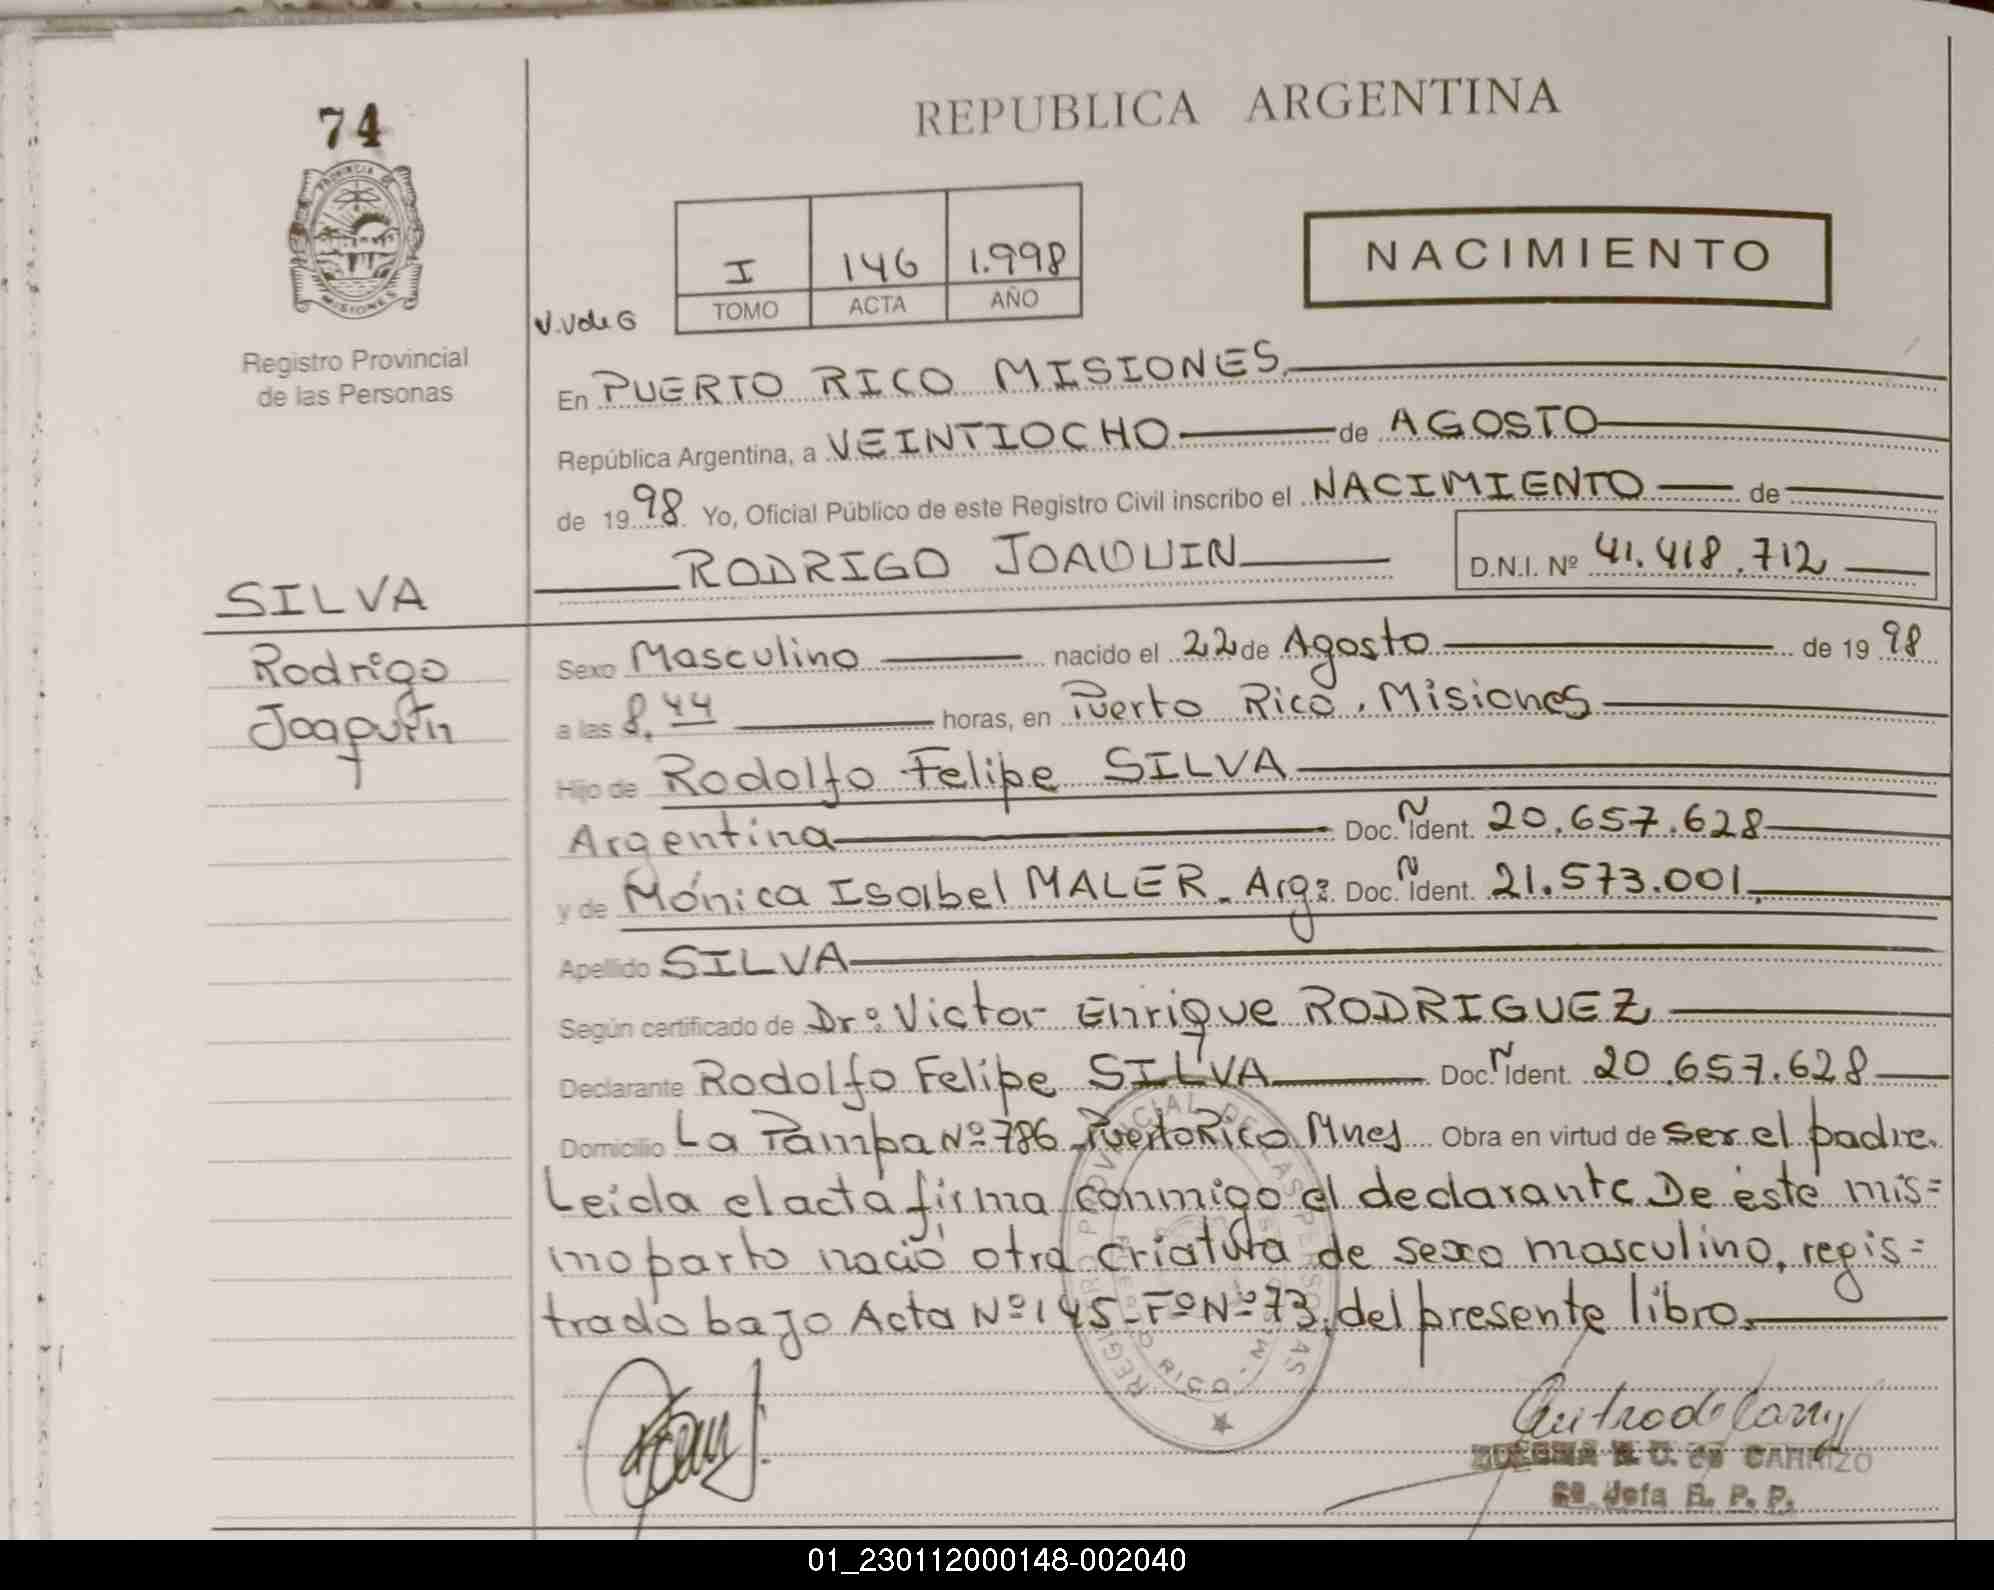 74
REPUBLICA ARGENTINA
PROVINCIA DE
MISIONES
Registro Provincial
de las Personas
I 146 1.998
TOMO ACTA AÑO
NACIMIENTO
V.V de G
En PUERTO RICO MISIONES
República Argentina, a VEINTIOCHO de AGOSTO
de 1998 Yo, Oficial Público de este Registro Civil inscribo el NACIMIENTO de
RODRIGO JOAQUIN D.N.I. Nº 41.418.712
SILVA
Rodrigo
Joaquín
Sexo Masculino nacido el 22 de Agosto de 1998
a las 8,44 horas, en Puerto Rico, Misiones
Hijo de Rodolfo Felipe SILVA
Argentina Doc. Ñ Ident. 20.657.628
y de Mónica Isabel MALER - Arg: Doc. Ñ Ident. 21.573.001
Apellido SILVA
Según certificado de Drº Victor Enrique RODRIGUEZ
Declarante Rodolfo Felipe SILVA Doc. Ñ Ident. 20.657.628
Domicilio La Pampa Nº 786 - Puerto Rico Mnes Obra en virtud de ser el padre.
Leída el acta firma conmigo el declarante. De éste mis=
mo parto nació otra criatura de sexo masculino, regis=
trado bajo Acta Nº 145 - Fº Nº 73, del presente libro.
REGISTRO PROVINCIAL DE LAS PERSONAS
R. U. de CARRIZO
Jefa R. P. P.
01_230112000148-002040